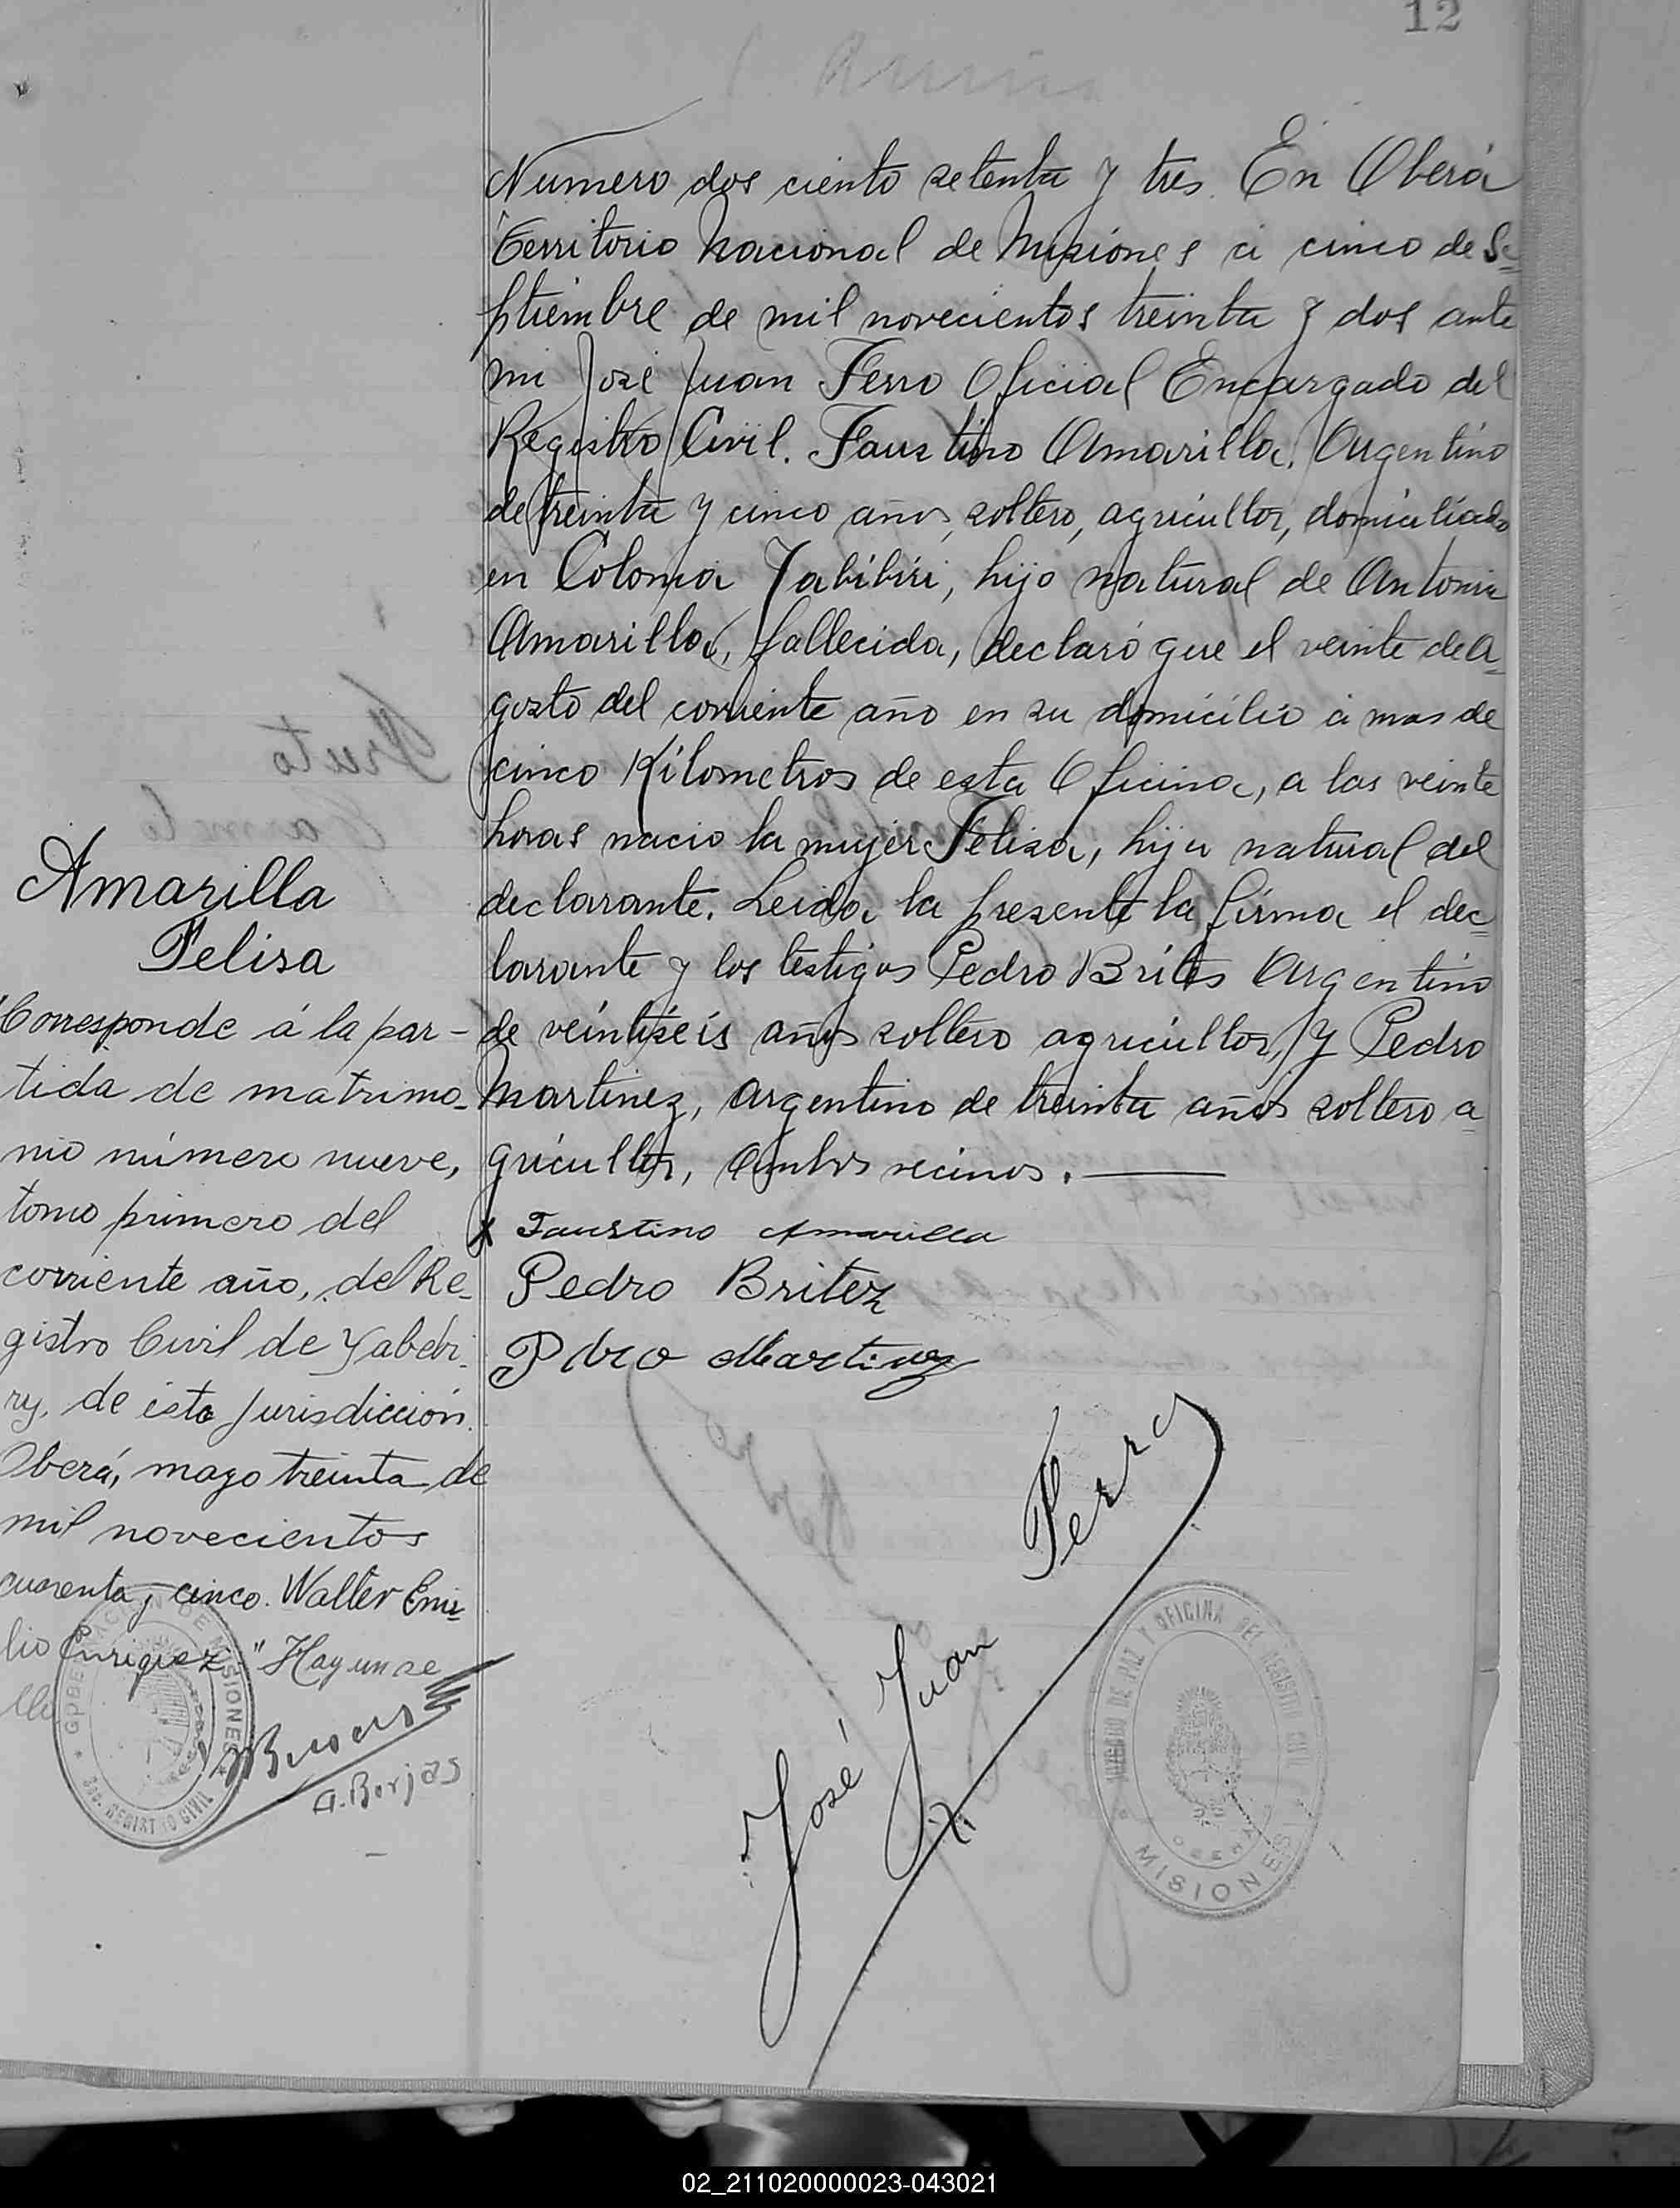 12
Numero dos ciento setenta y tres. En Oberá
Territorio Nacional de Misiones á cinco de Se=
ptiembre de mil novecientos treinta y dos ante
mi José Juan Ferro Oficial Encargado del
Registro Civil. Faustino Amarilla, Argentino
de treinta y cinco años, soltero, agricultor, domiciliado
en Colonia Yabibiri, hijo natural de Antonia
Amarilla, fallecida, declaró que el veinte de A=
gosto del corriente año en su domicilio á mas de
cinco Kilometros de esta Oficina, a las veinte
horas nacio la mujer Felisa, hija natural del
declarante. Leida la presente la firma el dec=
larante y los testigos Pedro Brites Argentino
de veintiseis años soltero agricultor, y Pedro
Martinez, argentino de treinta años soltero a=
gricultor, ambos vecinos.
x Faustino Amarilla
Pedro Britez
Pdro Martinez
José Juan Ferro
JUZGADO DE PAZ Y OFICINA DEL REGISTRO CIVIL
OBERA
MISIONES
Amarilla
Felisa
Corresponde á la par-
tida de matrimo-
nio número nueve,
tomo primero del
corriente año, del Re-
gistro Civil de Yabebi-
ry, de esta Jurisdicción.
Oberá, mayo treinta de
mil novecientos
cuarenta y cinco. Walter Emi=
lio Enriquez "Hay un se
llo
GOBERNACION DE MISIONES
SEC. REGISTRO CIVIL
A. Borjas
02_211020000023-043021